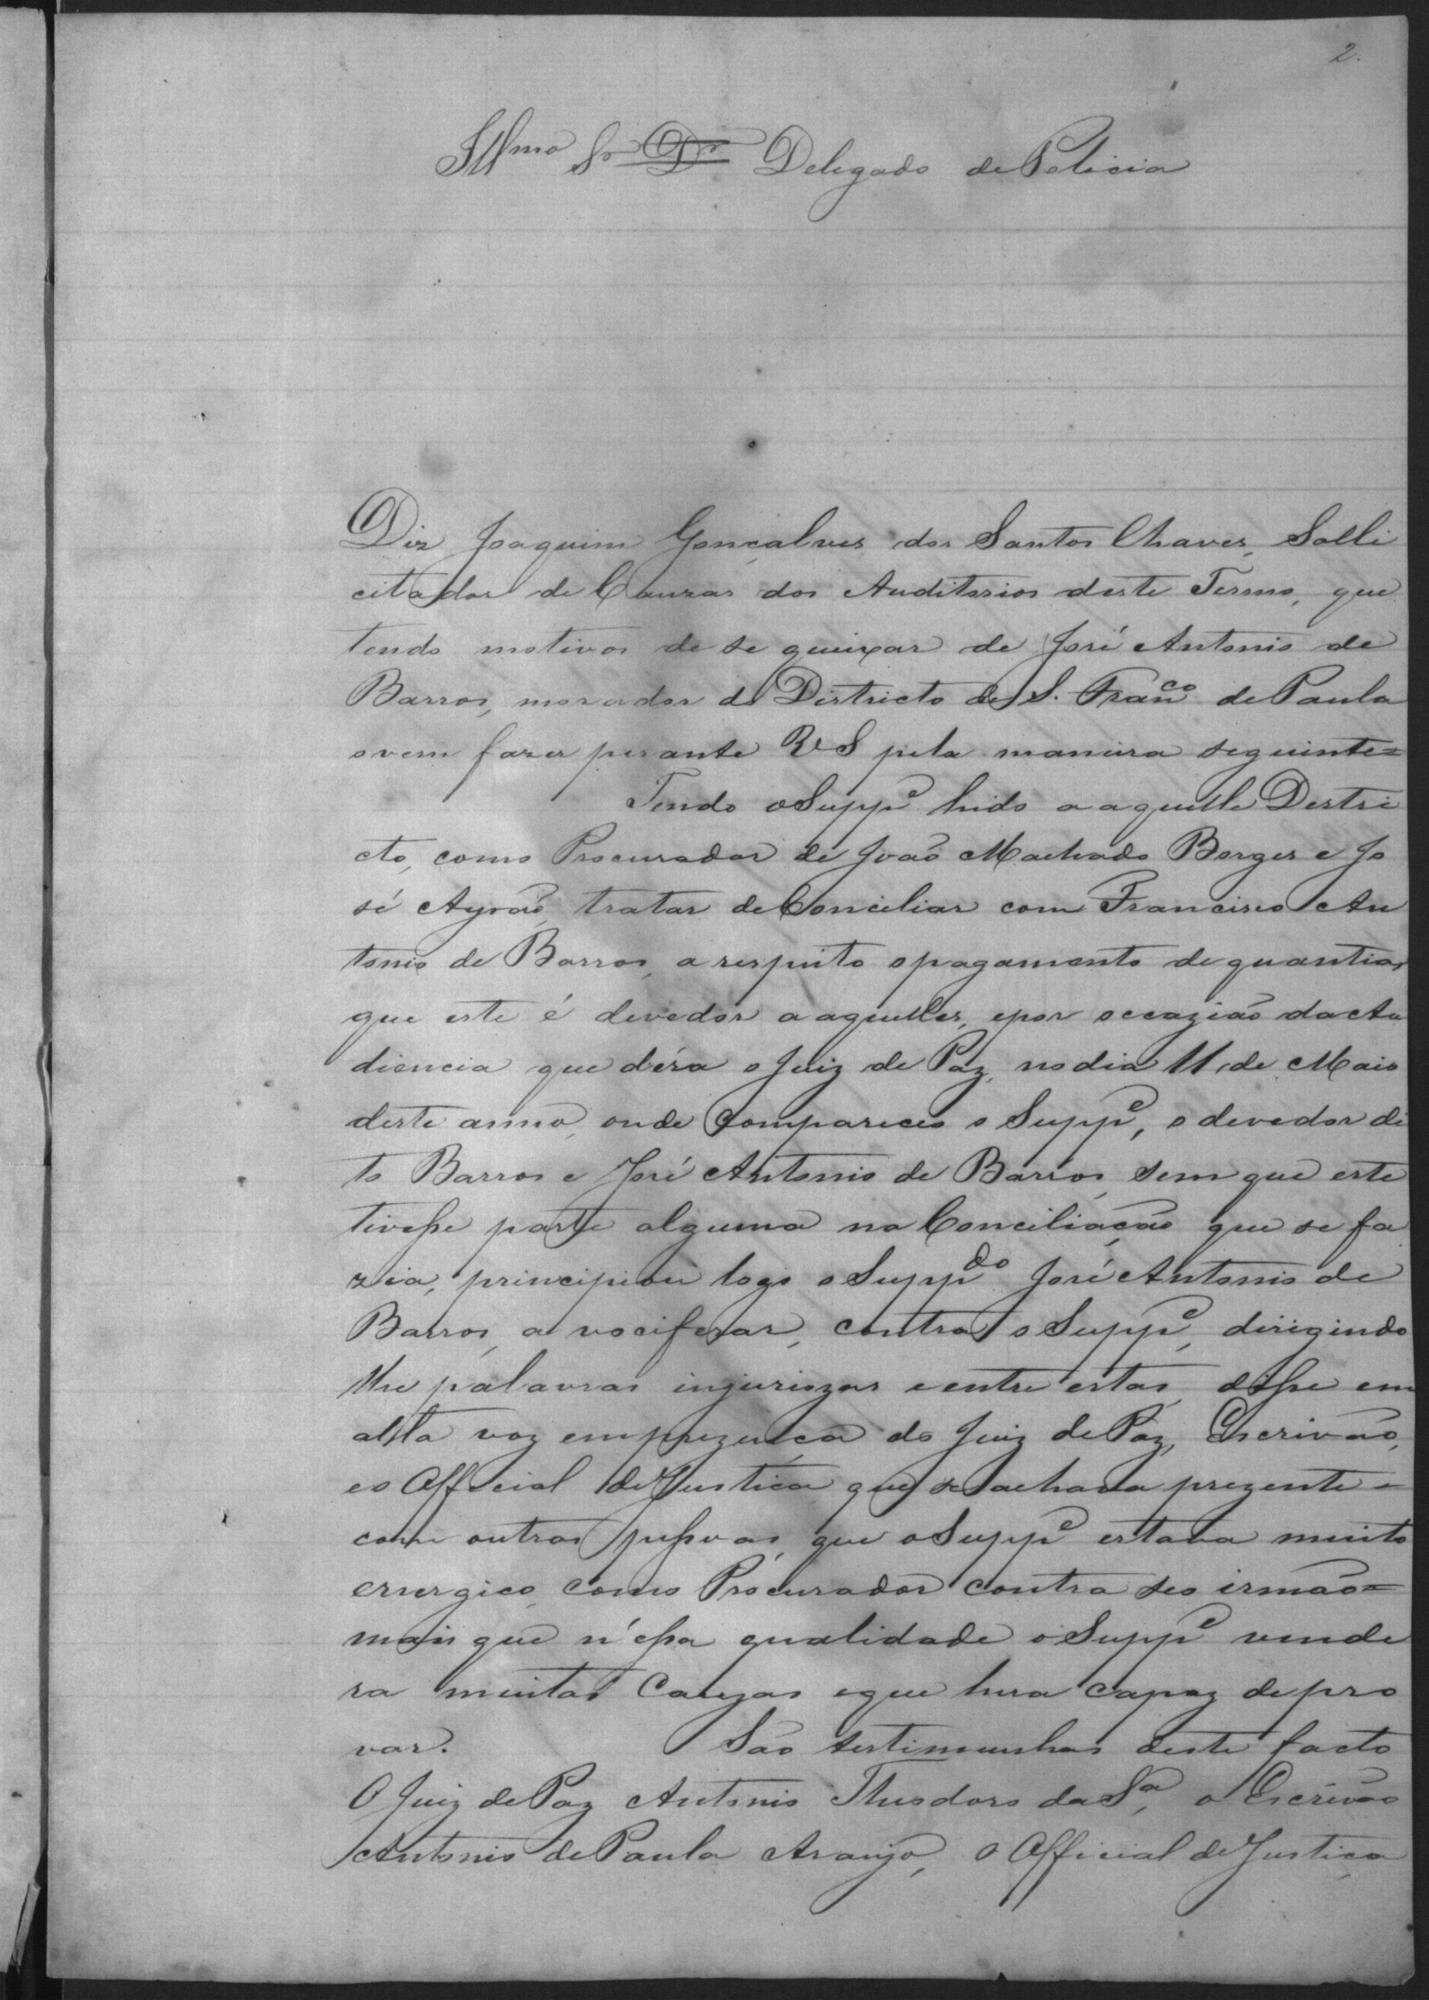 2.
Illmo Sr Dr Delegado de Policia
Diz Joaquim Gonçalves dos Santos Chaves, Solli
citador de Cauzas dos Auditorios deste Termo, que
tendo motivos de se queixar de José Antonio de
Barros, morador do Districto de S. Franco de Paula
o vem fazer perante VS pela maneira seguinte=
Tendo o Suppe hido a aquelle Destri
cto, como Procurador de João Machado Borges e Jo
sé Ayrão, tratar de Conciliar com Francisco An
tonio de Barros, a respeito o pagamento de quantias
que este é devedor a aquelles, e por occazião da Au
diencia que déra o Juiz de Paz, no dia 11 de Maio
deste anno, onde compareceo o Suppe, o devedor di
to Barros e José Antonio de Barros, sem que este
tivesse parte alguma na Conciliação que se fa
zia, principiou logo o Suppdo José Antonio de
Barros, a vociferar, contra o Suppe, dirigindo
lhe palavras injuriozas e entre estas, disse em
alta voz em prezença do Juiz de Paz, Escrivão,
e o Official de Justiça que se achava prezente=
com outras pessoas, que o Suppe estava muito
energico, como Procurador contra seo irmão=
mais que n'essa qualidade o Suppe vende
ra muitas Cauzas e que hera capaz de pro
var. São testimunhas deste facto
O Juiz de Paz Antonio Theodoro da Sa, o Escrivão
Antonio de Paula Araujo, o Official de Justiça